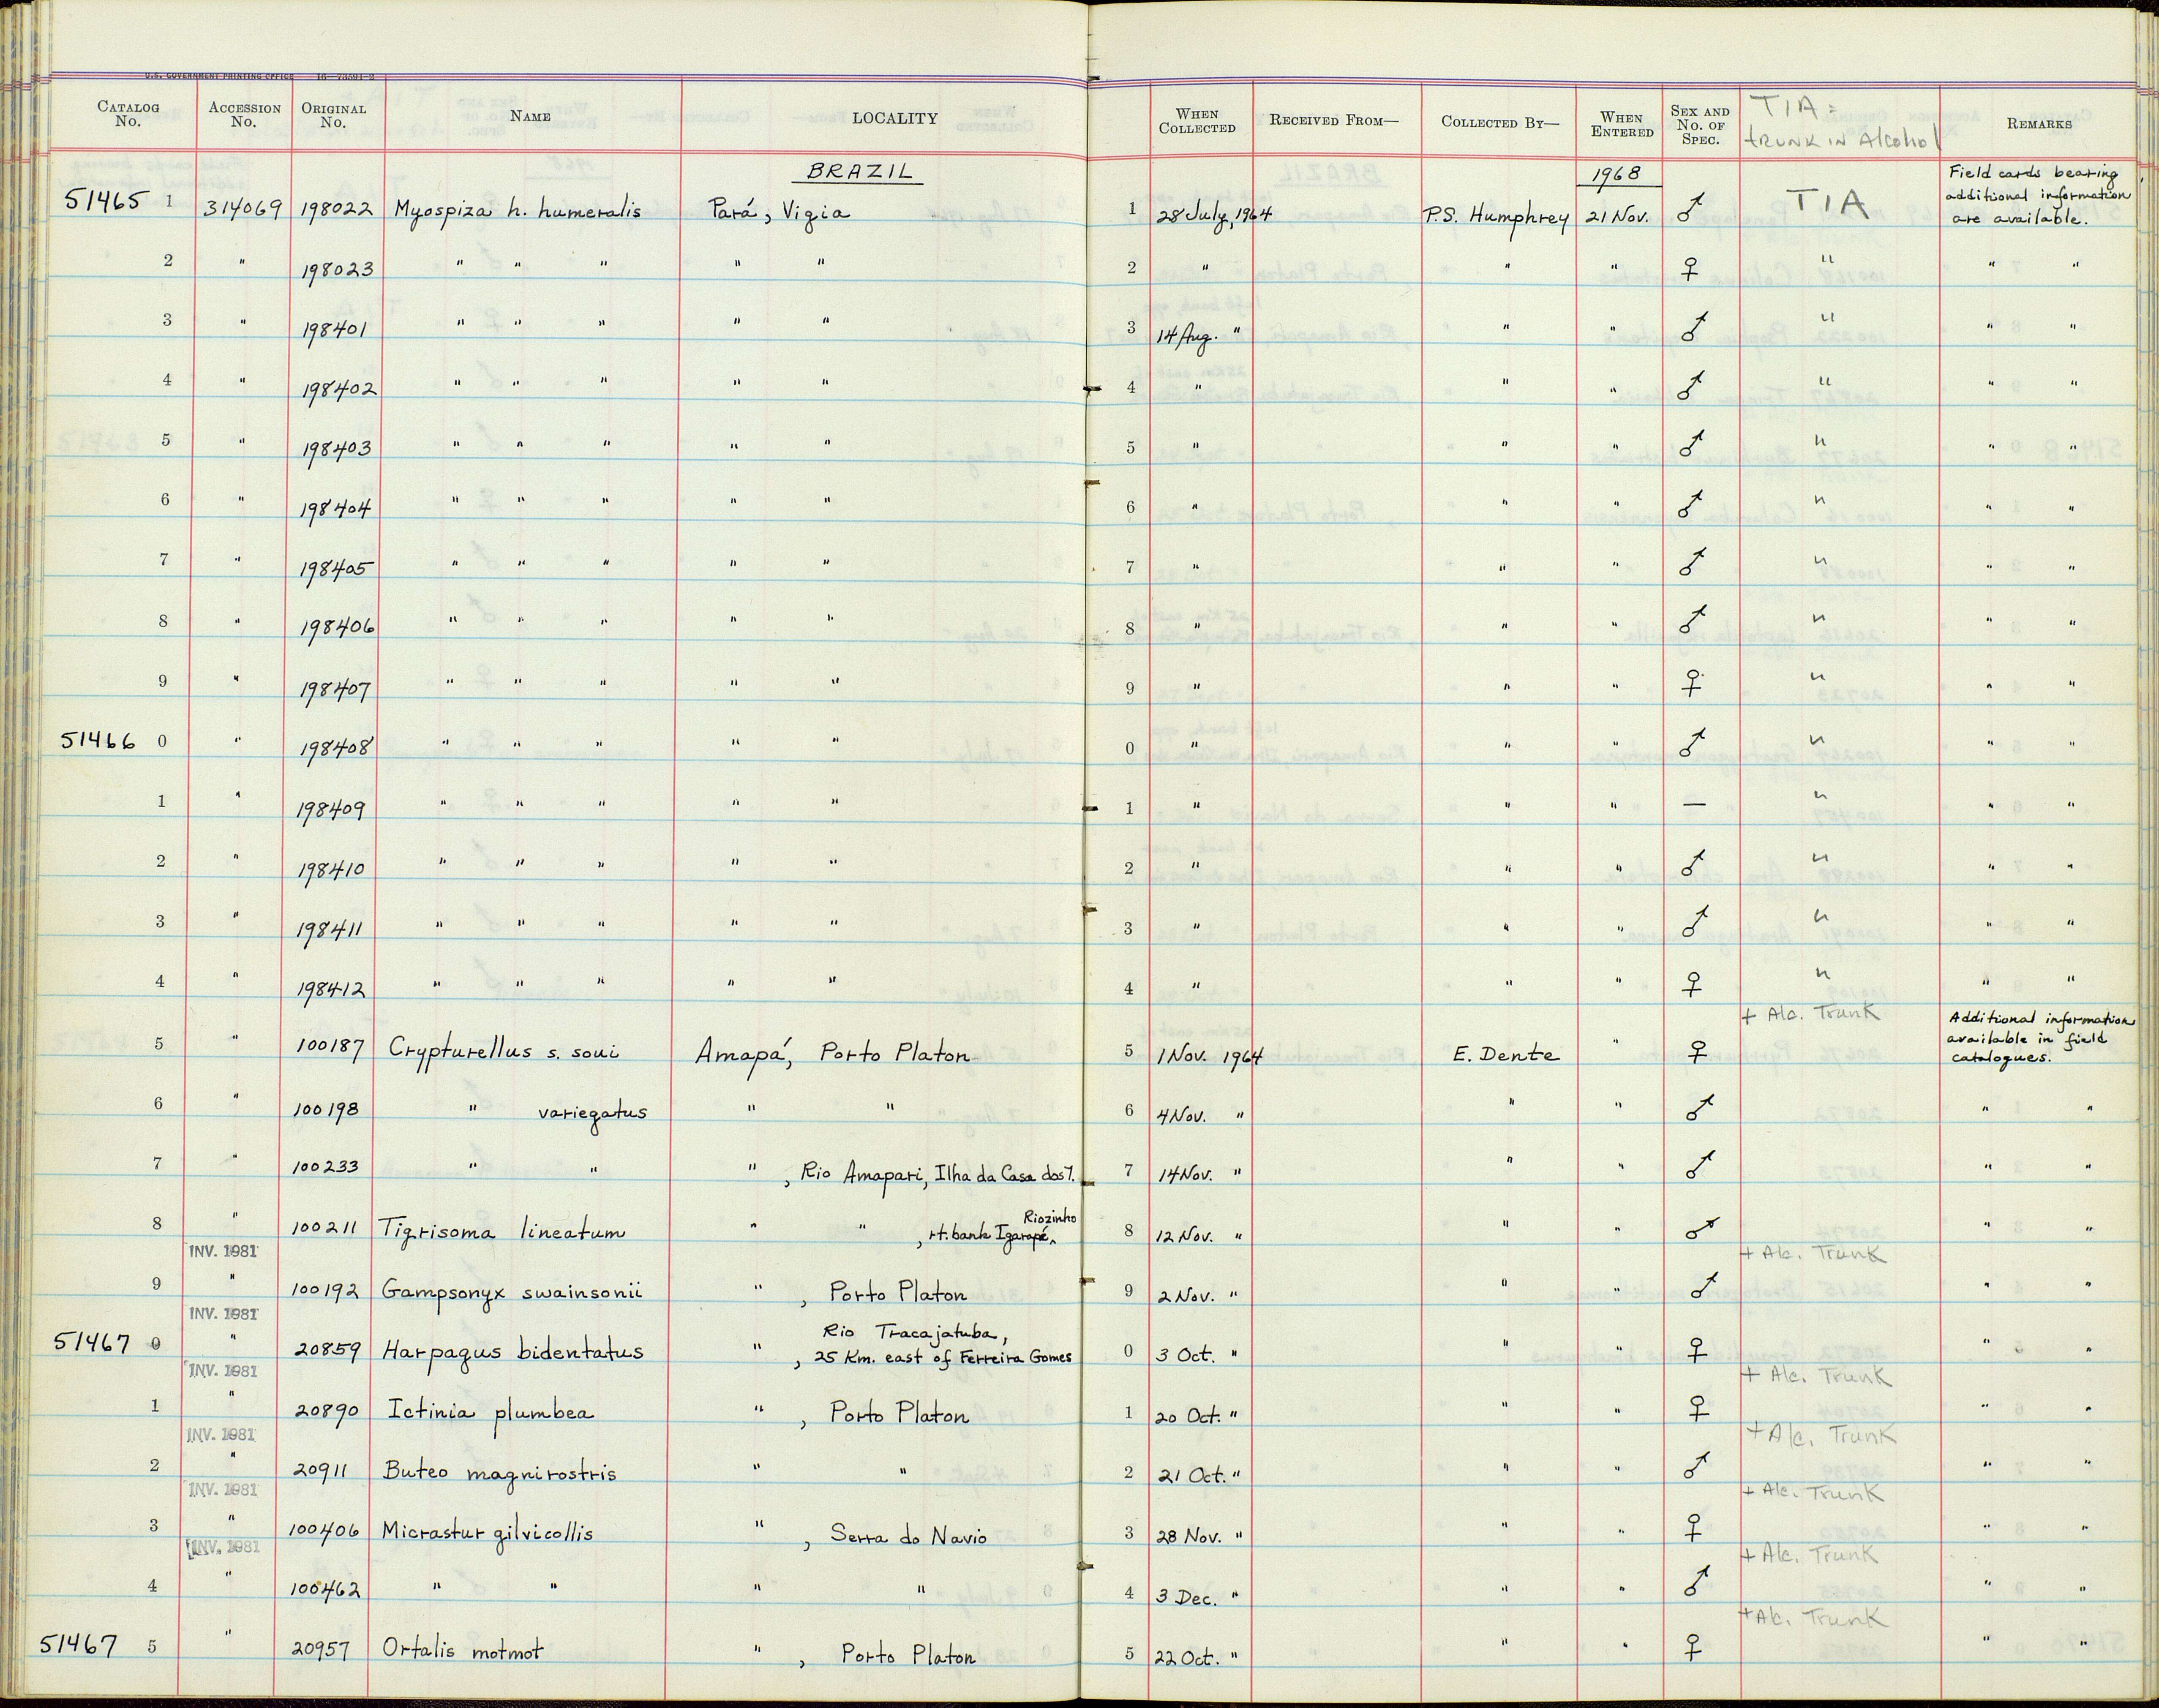 U.S. GOVERNMENT PRINTING OFFICE 16—73591-2
CATALOG No. ACCESSION No. ORIGINAL No. NAME LOCALITY WHEN COLLECTED RECEIVED FROM— COLLECTED BY— WHEN ENTERED SEX AND No. OF SPEC. TIA = TRUNK IN Alcohol REMARKS
BRAZIL 1968
51465 1 314069 198022 Myospiza h. humeralis Pará, Vigia 1 28 July, 1964 P.S. Humphrey 21 Nov. ♂ TIA Field cards bearing additional information are available.
2 " 198023 " " " " " 2 " " " ♀ " " "
3 " 198401 " " " " " 3 14 Aug. " " " ♂ " " "
4 " 198402 " " " " " 4 " " " ♂ " " "
5 " 198403 " " " " " 5 " " " ♂ " " "
6 " 198404 " " " " " 6 " " " ♂ " " "
7 " 198405 " " " " " 7 " " " ♂ " " "
8 " 198406 " " " " " 8 " " " ♂ " " "
9 " 198407 " " " " " 9 " " " ♀ " " "
51466 0 " 198408 " " " " " 0 " " " ♂ " " "
1 " 198409 " " " " " 1 " " " — " " "
2 " 198410 " " " " " 2 " " " ♂ " " "
3 " 198411 " " " " " 3 " " " ♂ " " "
4 " 198412 " " " " " 4 " " " ♀ " " "
5 " 100187 Crypturellus s. soui Amapá, Porto Platon 5 1 Nov. 1964 E. Dente " ♀ + Alc. Trunk Additional information available in field catalogues.
6 " 100198 " variegatus " " 6 4 Nov. " " " ♂ " "
7 " 100233 " " " , Rio Amapari, Ilha da Casa dos 7. 7 14 Nov. " " " ♂ " "
8 " 100211 Tigrisoma lineatum " " , rt. bank Igarapé Riozinho 8 12 Nov. " " " ♂ " "
INV. 1981 + Alc. Trunk
9 " 100192 Gampsonyx swainsonii " , Porto Platon 9 2 Nov. " " " ♂ " "
INV. 1981
51467 0 " 20859 Harpagus bidentatus " , Rio Tracajatuba, 25 Km. east of Ferreira Gomes 0 3 Oct. " " " ♀ " "
INV. 1981 + Alc. Trunk
1 " 20890 Ictinia plumbea " , Porto Platon 1 20 Oct. " " " ♀ " "
INV. 1981 + Alc. Trunk
2 " 20911 Buteo magnirostris " " 2 21 Oct. " " " ♂ " "
INV. 1981 + Alc. Trunk
3 " 100406 Micrastur gilvicollis " , Serra do Navio 3 28 Nov. " " " ♀ " "
INV. 1981 + Alc. Trunk
4 " 100462 " " " " 4 3 Dec. " " " ♂ " "
+ Alc. Trunk
51467 5 " 20957 Ortalis motmot " , Porto Platon 5 22 Oct. " " " ♀ " "